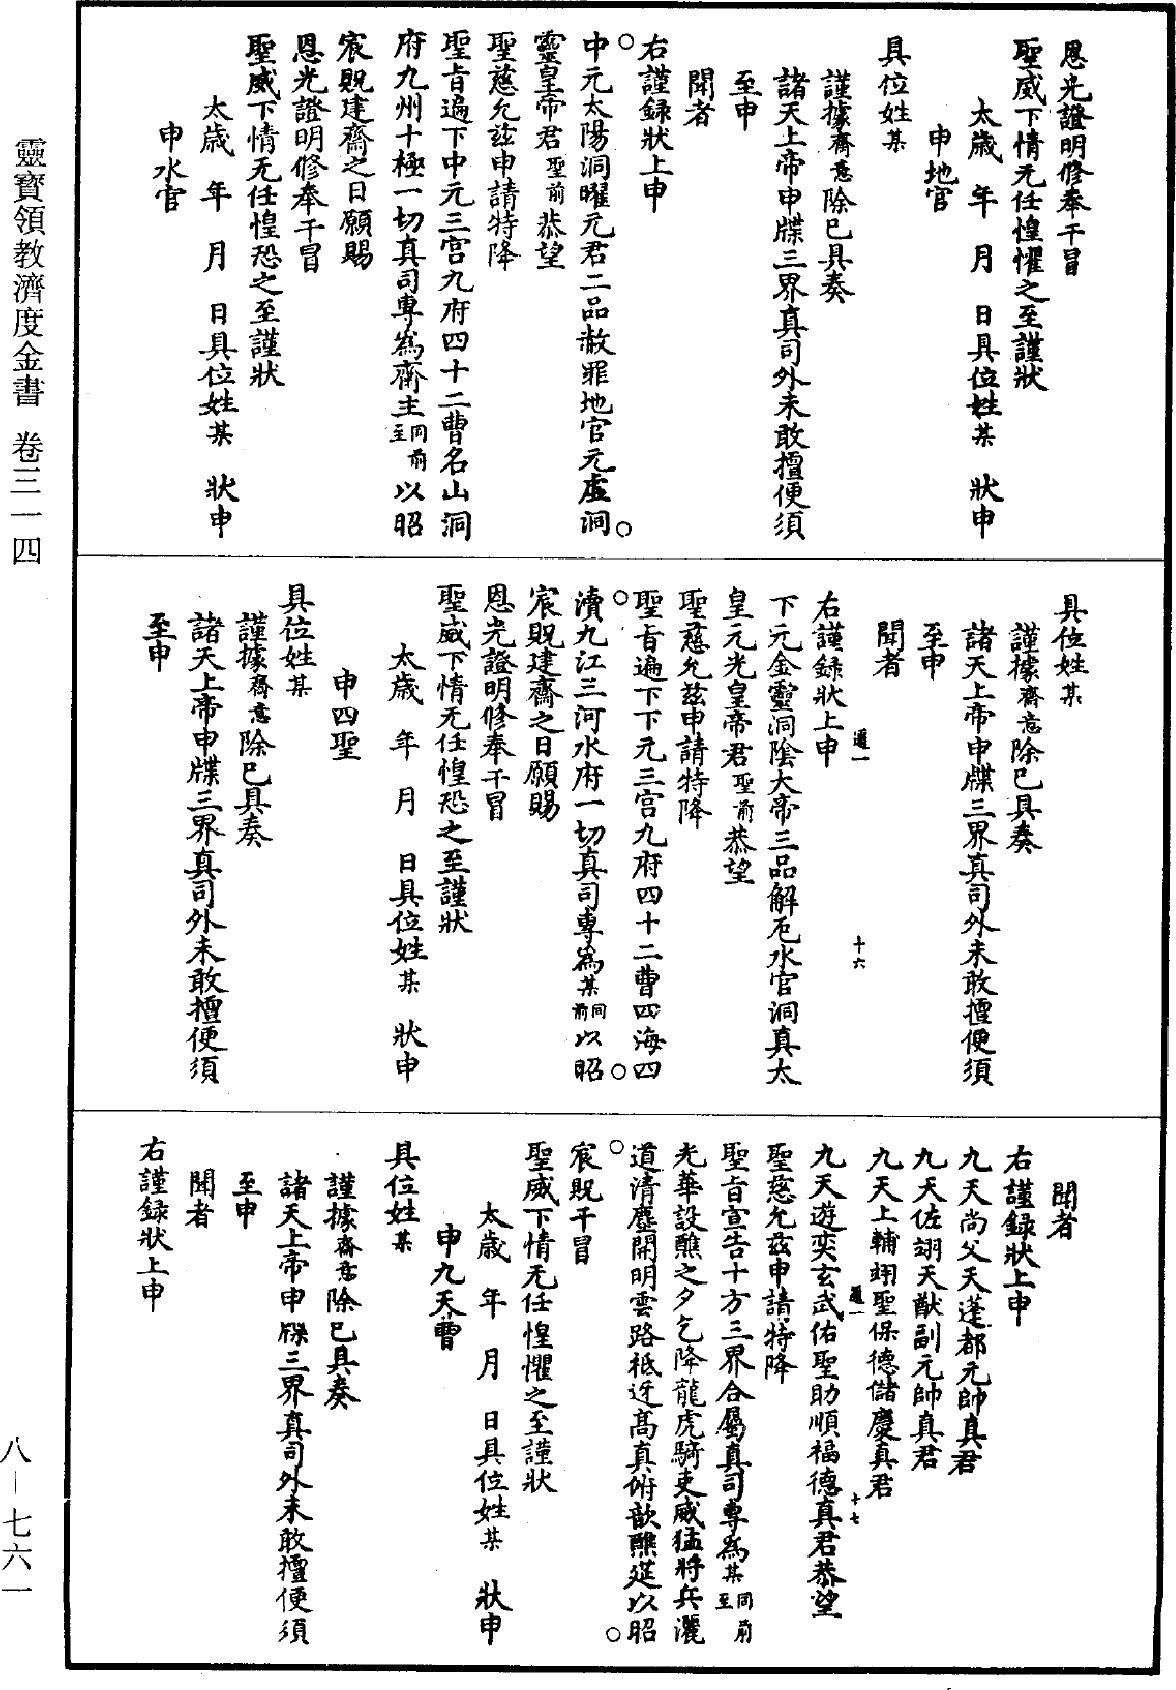 恩光證明修奉干冒
聖威下情无任惶懼之至謹狀
太歲　年　月　日具位姓某　狀申
申地官
具位姓某
謹據齋意除已具奏
諸天上帝申牒三界真司外未敢擅便須
至申
聞者
右謹録狀上申
中元太陽洞曜元君二品赦罪地官元虛洞
靈皇帝君聖前恭望
聖慈允兹申請特降
聖旨遍下中元三宫九府四十二曹名山洞
府九州十極一切真司專為齋主同前至以昭
宸貺建齋之日願賜
恩光證明修奉干冒
聖威下情无任惶恐之至謹狀
太歲　年　月　日具位姓某　狀申
申水官
具位姓某
謹據齋意除已具奏
諸天上帝申牒三界真司外未敢擅便須
至申
聞者
右謹録狀上申
下元金靈洞陰大帝三品解厄水官洞真太
皇元光皇帝君聖前恭望
聖慈允兹申請特降
聖旨遍下下元三宫九府四十二曹四海四
瀆九江三河水府一切真司專為某同前以昭
宸貺建齋之日願賜
恩光證明修奉干冒
聖威下情无任惶恐之至謹狀
太歲　年　月　日具位姓某　狀申
申四聖
具位姓某
謹據齋意除已具奏
諸天上帝申牒三界真司外未敢擅便須
至申
聞者
右謹録狀上申
九天尚父天蓬都元帥真君
九天佐翊天猷副元帥真君
九天上輔翊聖保德儲慶真君
九天遊奕玄武佑聖助順福德真君恭望
聖慈允兹申請特降
聖旨宣告十方三界合屬真司專為某同前至
光華設醮之夕乞降龍虎騎吏威猛將兵灑
道清塵開明雲路祗迓高真俯歆醮筵以昭
宸貺干冒
聖威下情无任惶懼之至謹狀
太歲　年　月　日具位姓某　狀申
申九天曹
具位姓某
謹據齋意除已具奏
諸天上帝申牒三界真司外未敢擅便須
至申
聞者
右謹録狀上申
十六
十七
靈寶領教濟度金書　卷三一四
八—七六一